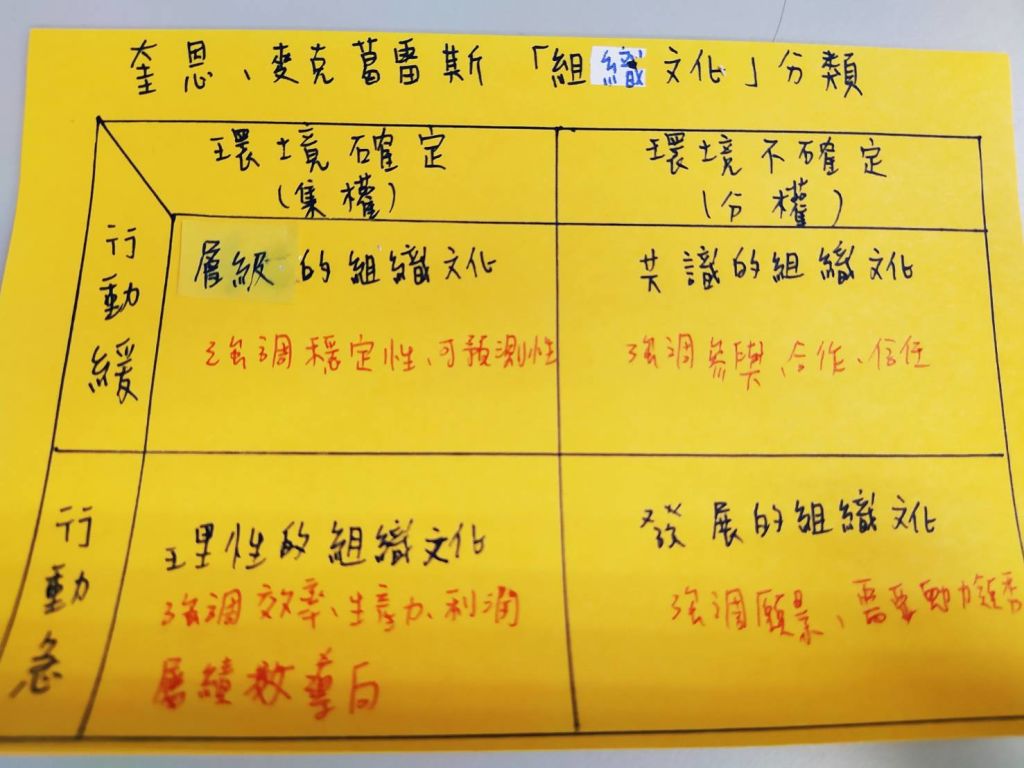 奎恩、麥克葛雷斯「組織文化」分類
環境確定
(集權)
環境不確定
(分權)
行動緩
層級的組織文化
強調穩定性、可預測性
共識的組織文化
強調參與、合作、信任
行動急
理性的組織文化
強調效率、生產力、利潤
屬績效導向
發展的組織文化
強調願景、需要動力